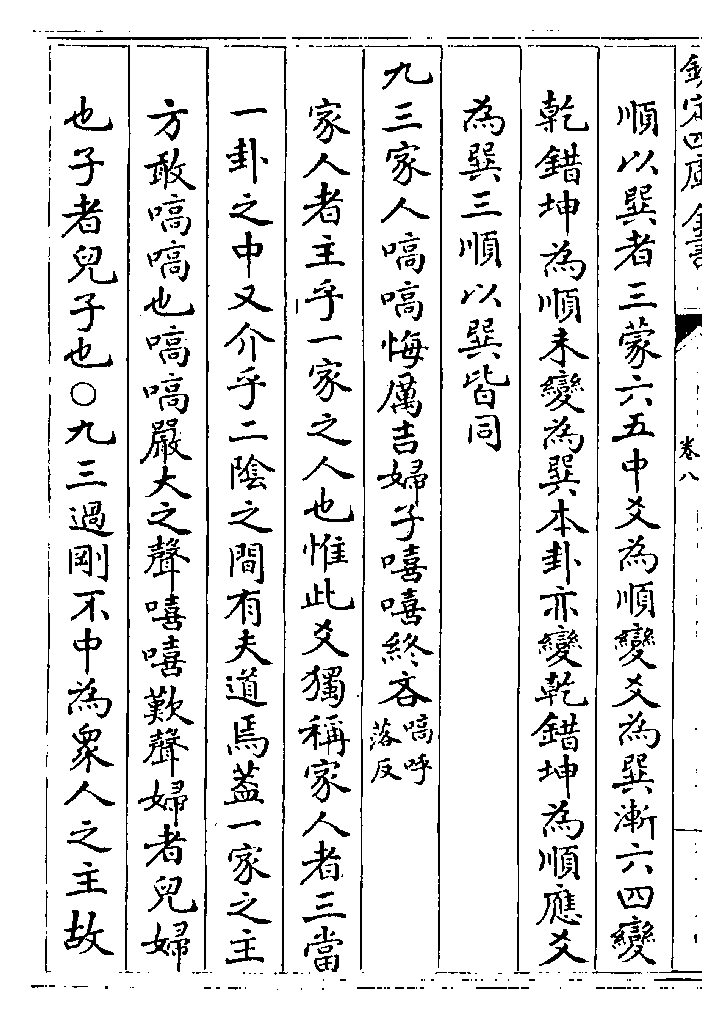 欽定四庫全書
卷八
順以巽者三蒙六五中爻為順變爻為巽漸六四變
乾錯坤為順未變為巽本卦亦變乾錯坤為順應爻
為巽三順以巽皆同
九三家人嗃嗃悔厲吉婦子嘻嘻終吝嗃呼落反
家人者主乎一家之人也惟此爻獨稱家人者三當
一卦之中又介乎二陰之間有夫道焉蓋一家之主
方敢嗃嗃也嗃嗃嚴大之聲嘻嘻歎聲婦者兒婦
也子者兒子也○九三過剛不中為衆人之主故